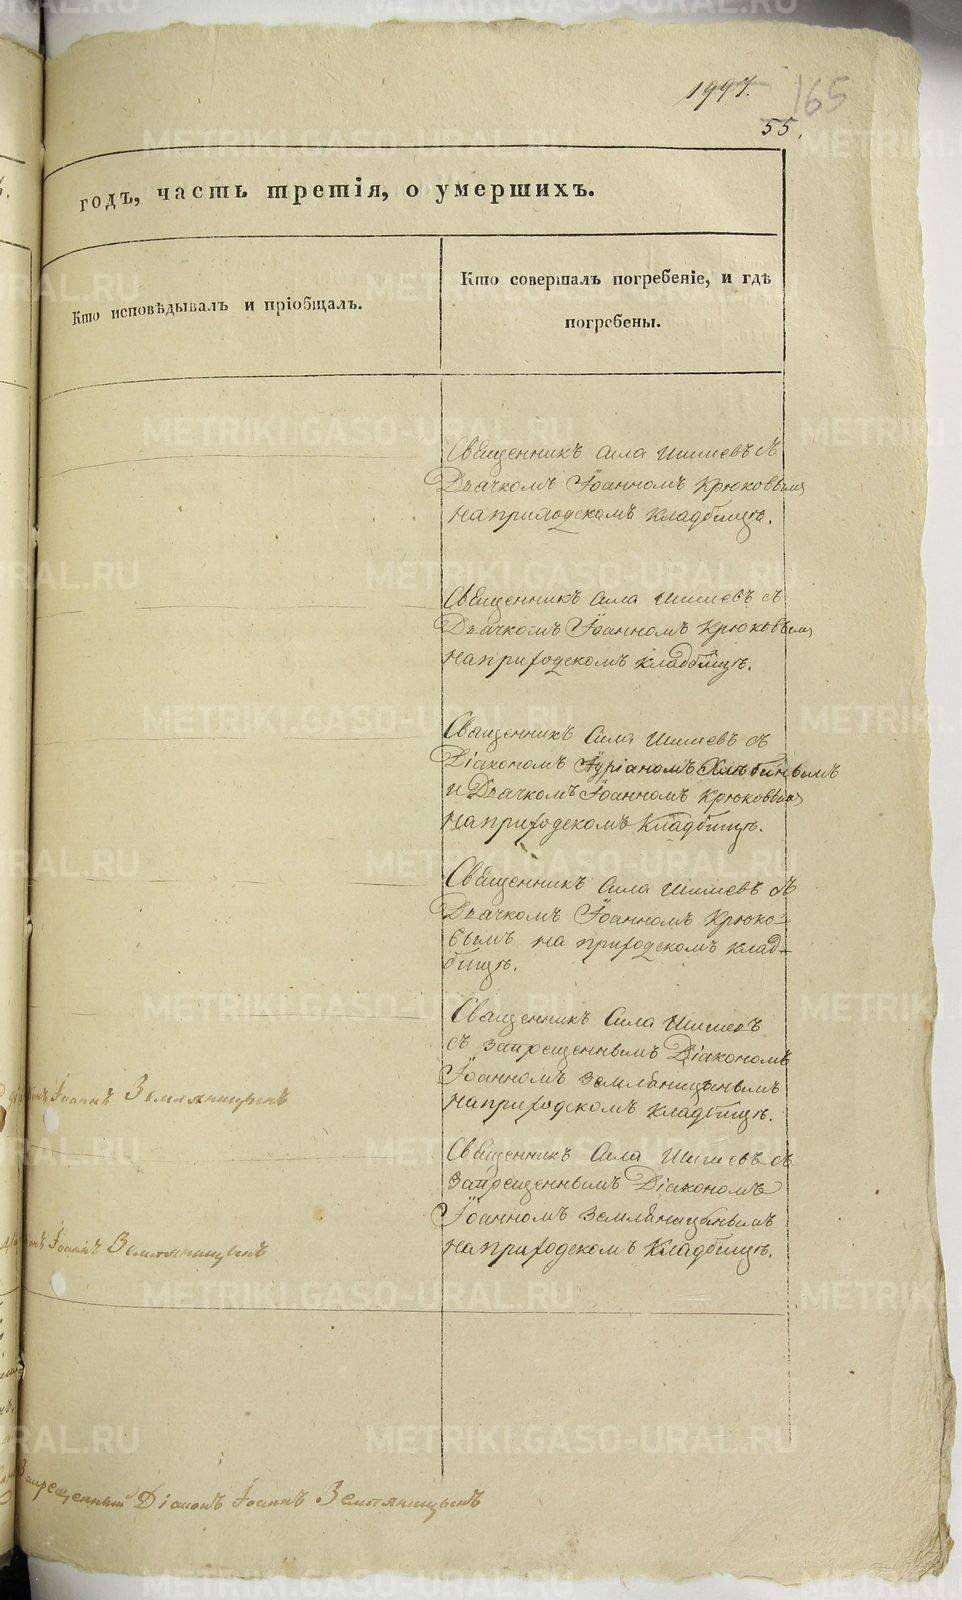 1997.
165
55.
годъ, часть третія, о умершихъ.
Кто исповѣдывалъ и пріобщалъ.
Кто совершалъ погребеніе, и гдѣ
погребены.
Священникъ Сила Шишевъ съ
Дьячкомъ Іоанномъ Крюковымъ
на приходскомъ кладбищѣ.
Священникъ Сила Шишевъ съ
Дьячкомъ Іоанномъ Крюковымъ
на приходскомъ кладбищѣ.
Священникъ Сила Шишевъ съ
Діакономъ
и Дьячкомъ Іоанномъ Крюковымъ
на приходскомъ кладбищѣ.
Священникъ Сила Шишевъ съ
Дьячкомъ Іоанномъ Крюко-
вымъ на приходскомъ клад-
бищѣ.
Священникъ Сила Шишевъ
съ запрещеннымъ Діакономъ
Іоанномъ Земляницынымъ
на приходскомъ кладбищѣ.
Іоаннъ Земляницынъ
Священникъ Сила Шишевъ съ
запрещеннымъ Діакономъ
Іоанномъ Земляницынымъ
на приходскомъ кладбищѣ.
Іоаннъ Земляницынъ
Запрещенный Діаконъ Іоаннъ Земляницынъ
METRIKI.GASO-URAL.RU